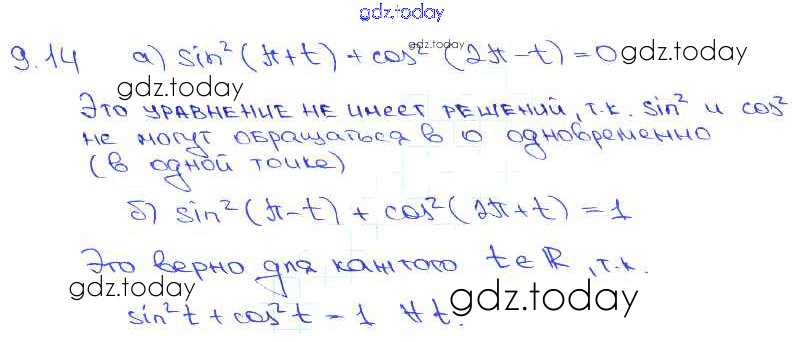 gdz.today
9.14 а) sin²(π+t) + cos²(2π-t) = 0 gdz.today
gdz.today
gdz.today
Это уравнение не имеет решений, т.к. sin² и cos²
не могут обращаться в 0 одновременно
(в одной точке)
gdz.today
б) sin²(π-t) + cos²(2π+t) = 1
Это верно для каждого t∈R, т.к.
gdz.today
gdz.today
sin²t + cos²t = 1 ∀t.